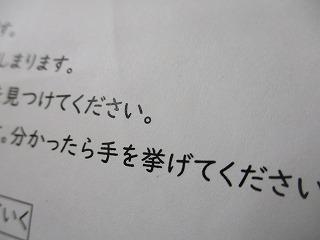 す。
しまります。
を見つけてください。
。分かったら手を挙げてください
いく